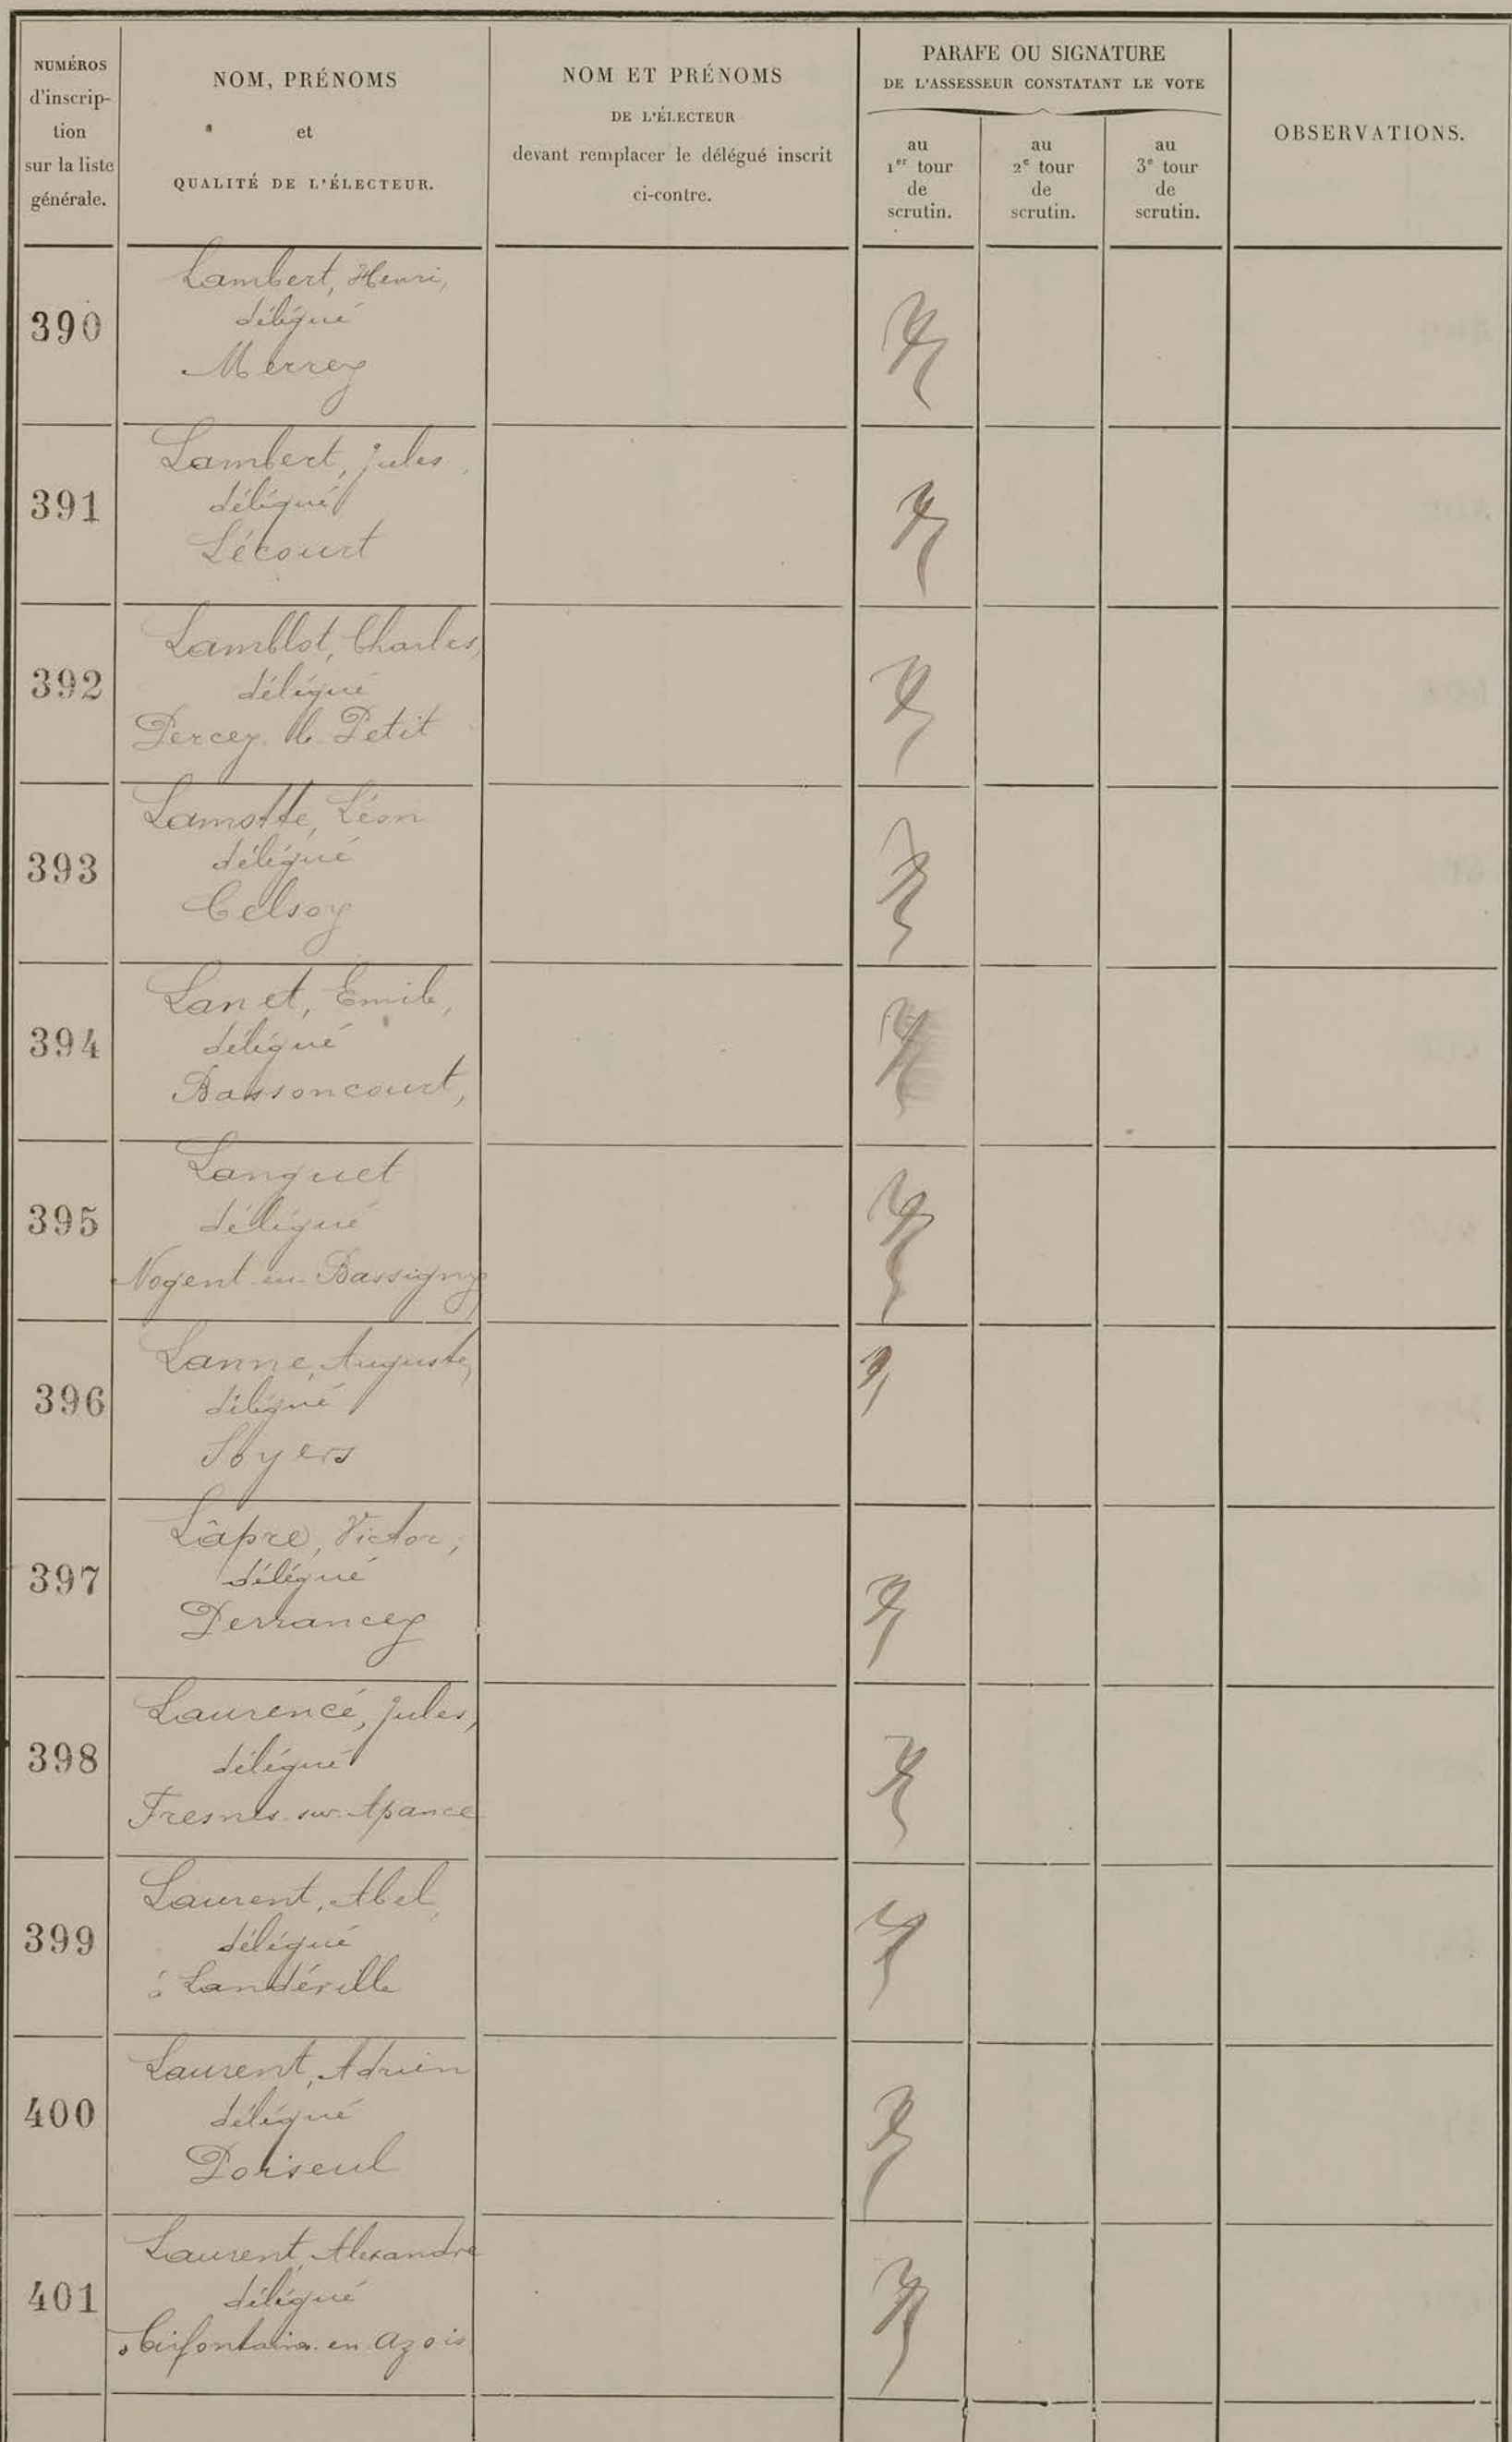 NUMÉROS
d'inscrip-
tion
sur la liste
générale.
NOM, PRÉNOMS
et
QUALITÉ DE L'ÉLECTEUR.
NOM ET PRÉNOMS
DE L'ÉLECTEUR
devant remplacer le délégué inscrit
ci-contre.
PARAFE OU SIGNATURE
DE L'ASSESSEUR CONSTATANT LE VOTE
au
1er tour
de
scrutin.
au
2e tour
de
scrutin.
au
3e tour
de
scrutin.
OBSERVATIONS.
390
Lambert, Henri,
délégué
Merrey
391
Lambert, Jules,
délégué
Lécourt
392
Lamblot, Charles,
délégué
Percey le Petit
393
Lamotte, Léon
délégué
Celsoy
394
Lanet, Emile,
délégué
Bassoncourt,
395
Languet
délégué
Nogent-en-Bassigny
396
Lanne, Auguste,
délégué
Soyers
397
Lâpre, Victor,
délégué
Perrancey
398
Laurencé, Jules,
délégué
Fresnes-sur-Apance
399
Laurent, Abel,
délégué
à Landéville
400
Laurent, Adrien
délégué
Poiseul
401
Laurent, Alexandre
délégué
Cirfontaines-en-Azois